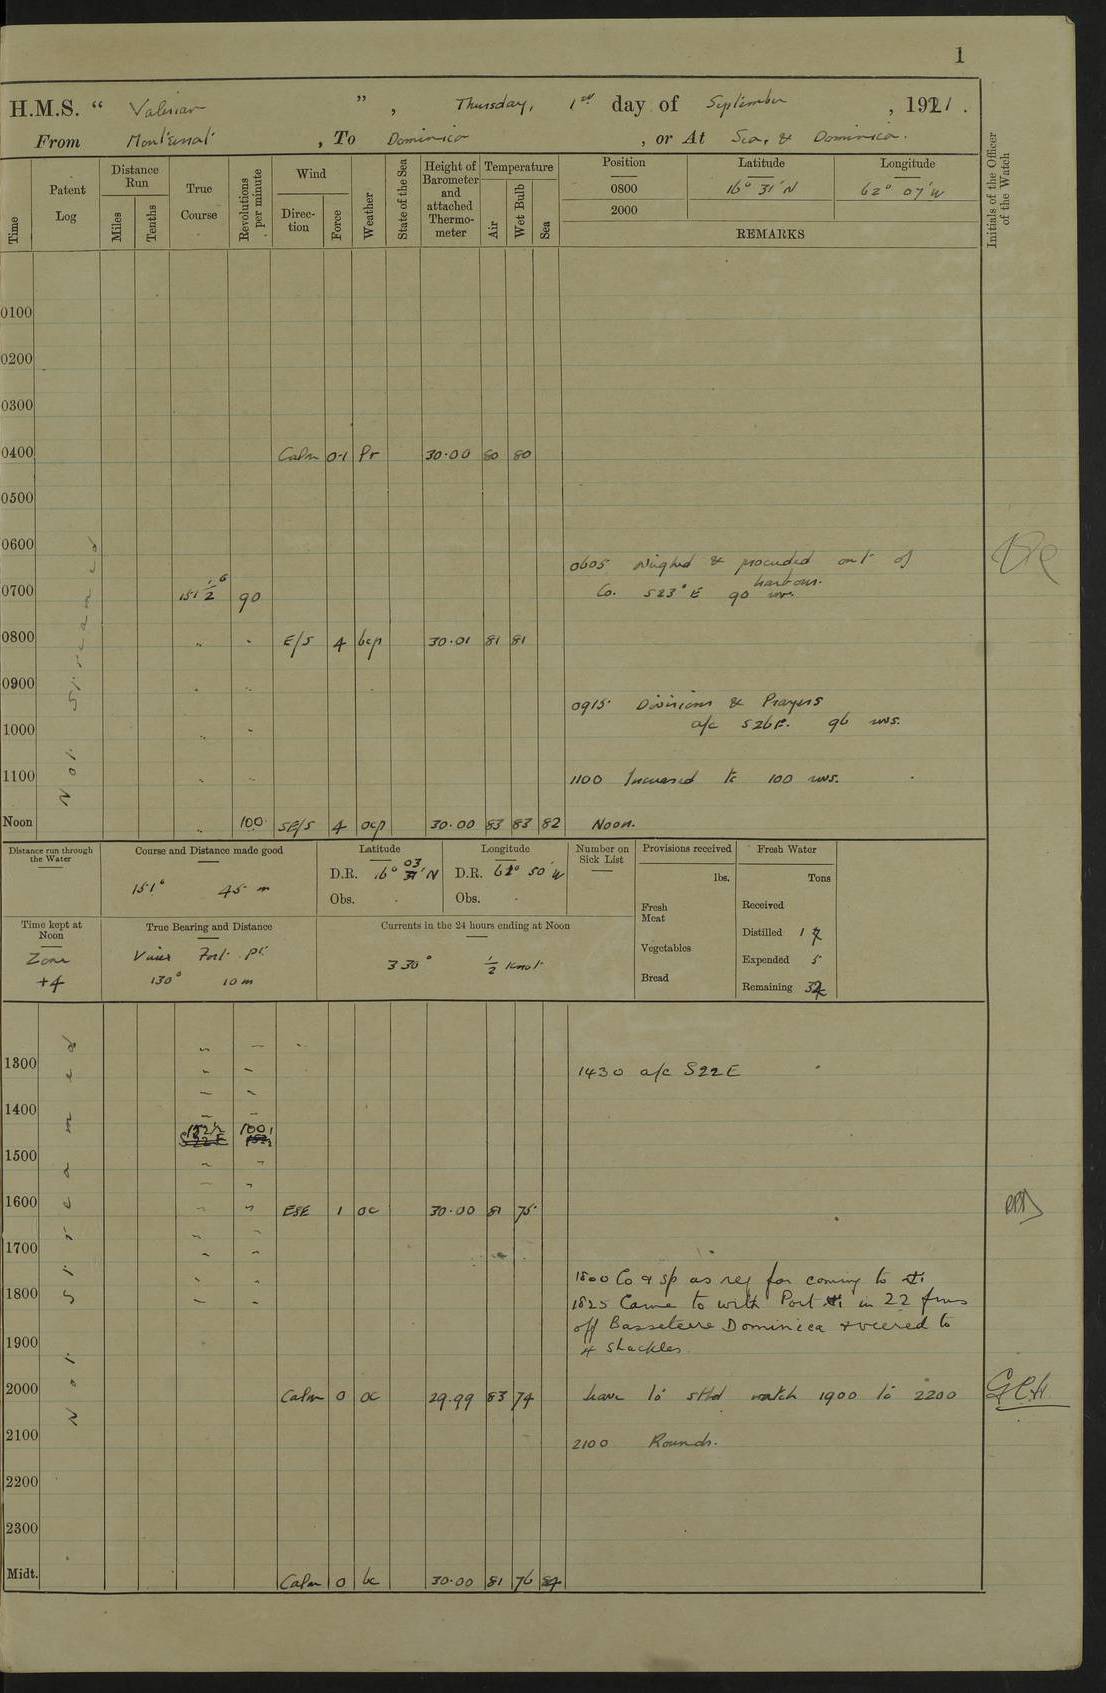 1
H.M.S. “ Valerian ” , Thursday, 1st day of September , 1921 .
From Montserrat , To Dominica , or At Sea, & Dominica.
Time
Patent Log
Distance Run
Miles
Tenths
True Course
Revolutions per minute
Wind
Direction
Force
Weather
State of the Sea
Height of Barometer and attached Thermometer
Temperature
Air
Wet Bulb
Sea
Position Latitude Longitude
0800 16° 31' N 62° 07' W
2000
REMARKS
Initials of the Officer of the Watch
Not Streamed
0100
0200
0300
0400 Calm 0-1 Pr 30.00 80 80
0500
0600
0605 Weighed & proceeded out of harbour.
0700 151 1/2° 90 Co. S23°E 90 revs.
0800 " " E/S 4 bcp 30.01 81 81
0900 " "
0915. Divisions & Prayers
a/c S26E. 96 revs.
1000 " "
1100 " " 1100 Increased to 100 revs.
Noon " 100 SE/S 4 ocp 30.00 83 83 82 Noon.
Distance run through the Water
Course and Distance made good
151° 45 m
Latitude
D.R. 16° 03' N
Obs.
Longitude
D.R. 61° 50' W
Obs.
Number on Sick List
Provisions received
lbs.
Fresh Meat
Vegetables
Bread
Fresh Water
Tons
Received
Distilled 1
Expended 5
Remaining
Time kept at Noon
Zone
+4
True Bearing and Distance
Fort Pt.
130° 10 m
Currents in the 24 hours ending at Noon
330° 1/2 Knot
Not Streamed
1300
1430 a/c S22E
1400
152½ 100
1500
1600 " " ESE 1 oc 30.00 81 75
1700
1800 Co & sp as req for coming to
1800 1825 Came to with Port in 22 fms
off Basseterre Dominica & veered to
1900 4 shackles
2000 Calm 0 oc 29.99 83 74 leave to stbd watch 1900 to 2200 GCH
2100 2100 Rounds.
2200
2300
Midt. Calm 0 bc 30.00 81 76 84